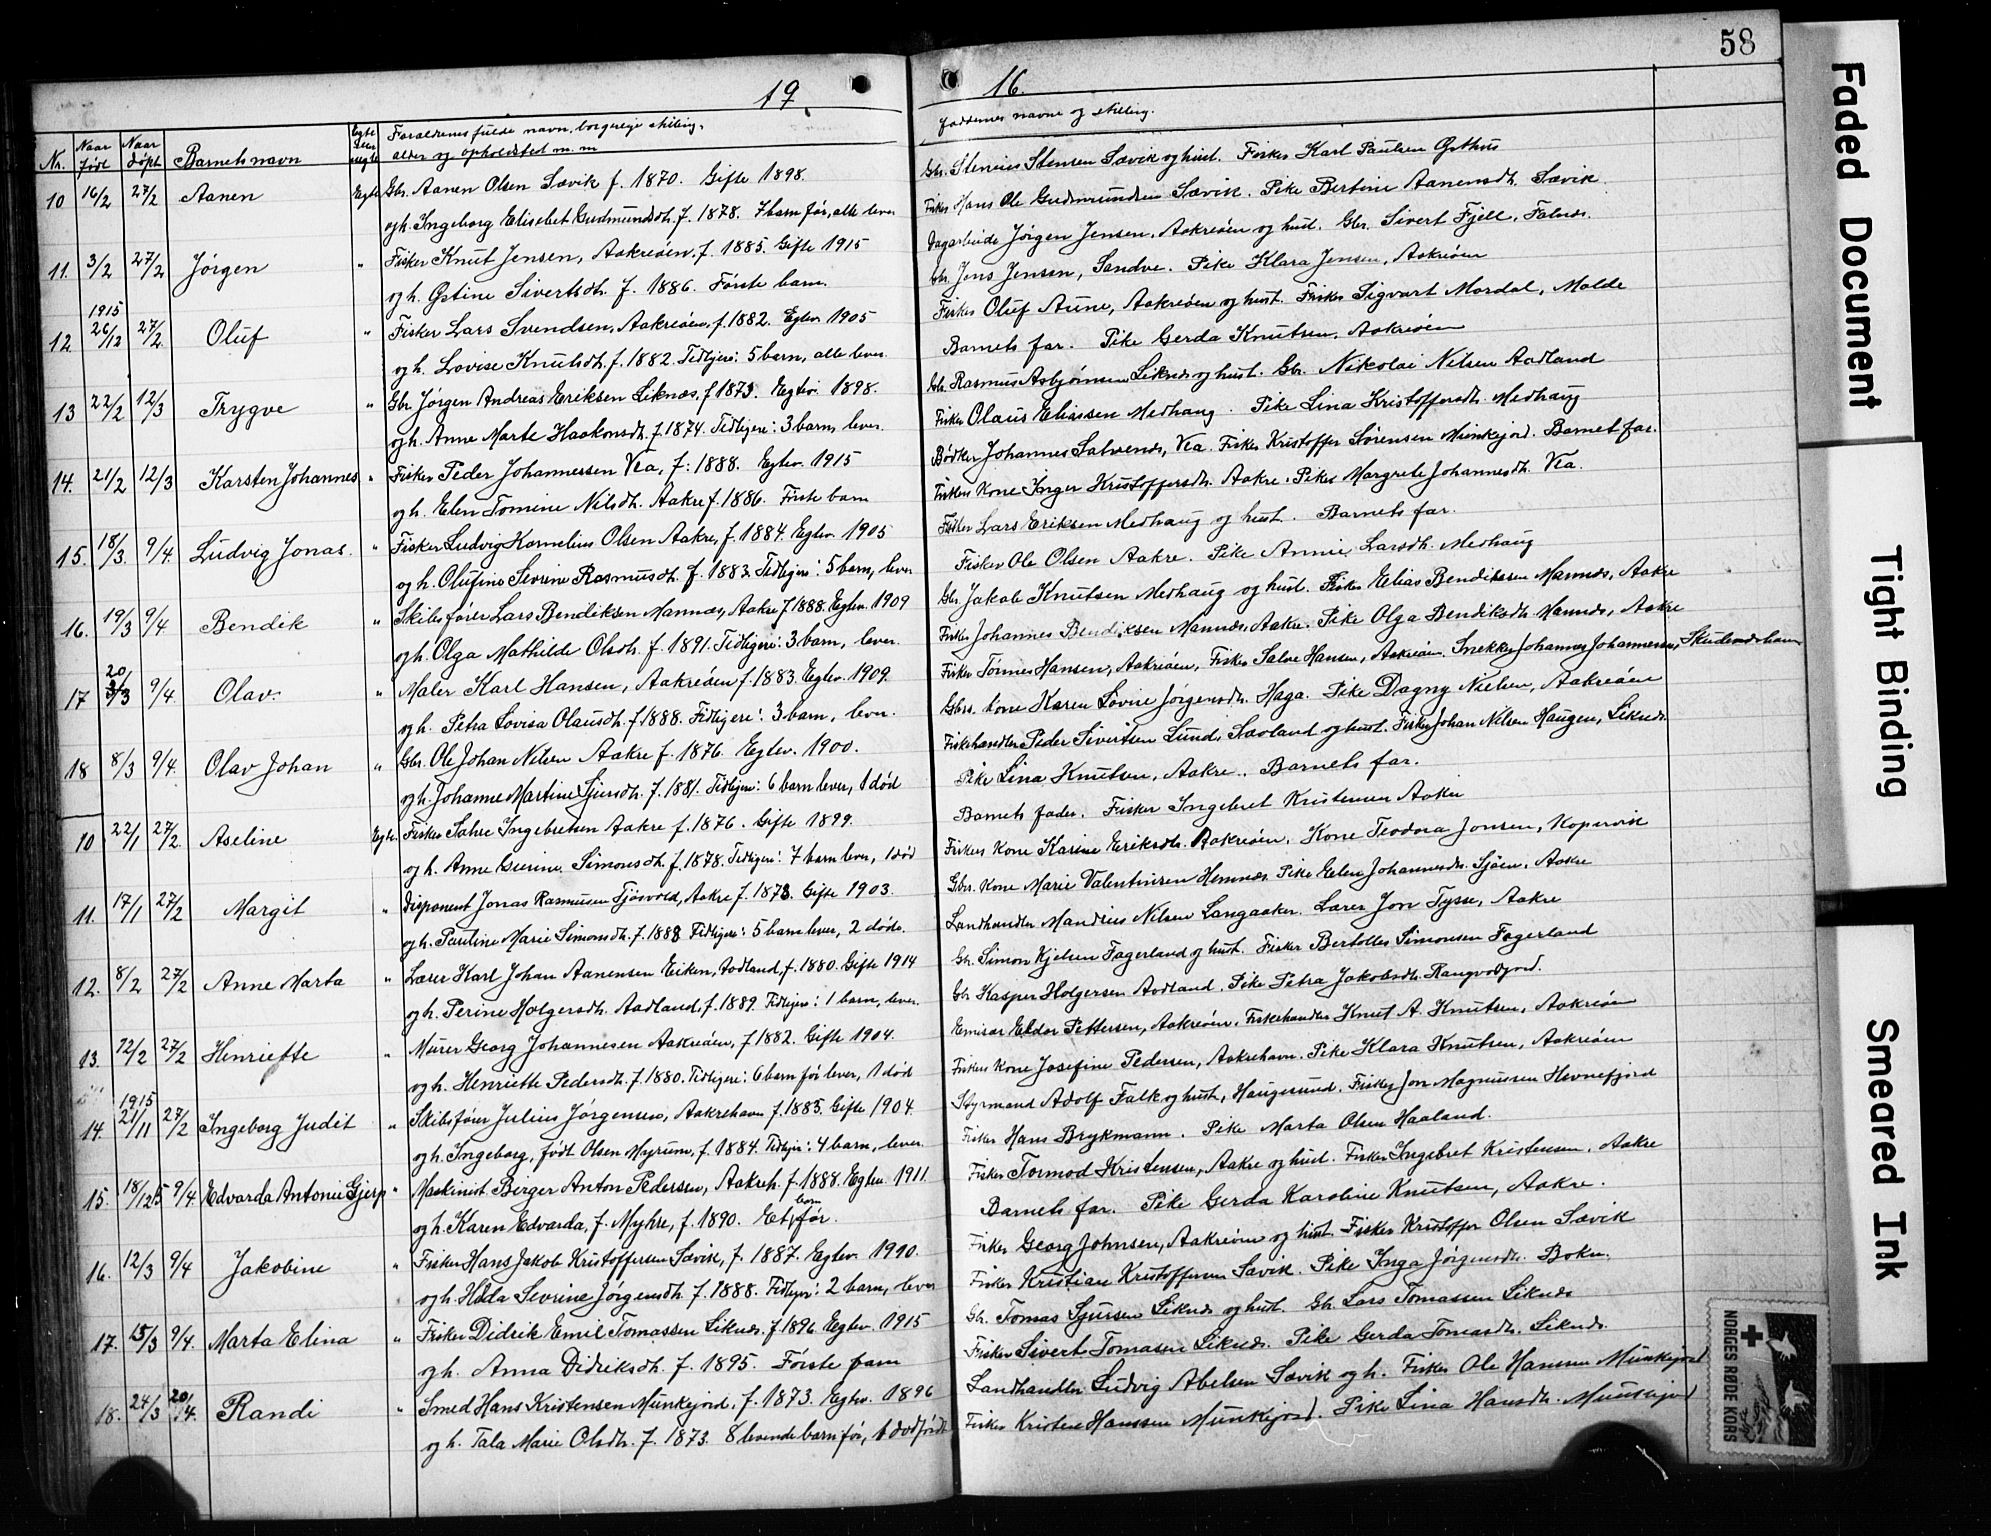 58
19
16.
Nr. Naar født Naar døpt Barnets navn Egte eller uegte Forældrenes fulde navn, borgerlige stilling, alder og opholdsted m. m
Faddernes navne og stilling.
10 16/2 27/2 Aanen Egte Gbr. Aanen Olsen Sævik f. 1870. Gifte 1898.
og h. Ingeborg Elisebet Gudmundsdtr. f. 1878. 7 barn før, alle lever
11. 3/2 27/2 Jørgen " Fisker Knut Jensen, Aakreøen. f. 1885. Gifte 1915
og h. Gstine Sivertsdtr. f. 1886. Første barn.
12 1915 26/12 27/2 Oluf " Fisker Lars Svendsen, Aakreøen, f. 1882. Egtev. 1905
og h. Lovise Knutsdtr. f. 1882. Tidligere: 5 barn, alle lever.
13 22/2 12/3 Trygve " Gbr. Jørgen Andreas Eriksen Liknæs, f 1873. Egtev. 1898.
og h. Anne Marte Haakonsdtr. f. 1874. Tidligere: 3 barn, lever.
14. 21/2 12/3 Karsten Johannes " Fisker Peder Johannessen Vea, f. 1888. Egtev. 1915
og h. Elen Tomine Nilsdtr. Aakre f. 1886. Første barn
15. 18/3 9/4. Ludvig Jonas. " Fisker Ludvig Kornelius Olsen Aakre, f. 1884. Egtev. 1905
og h. Olufine Sevrine Rasmusdtr. f. 1883. Tidligere: 5 barn, lever
16. 19/3 9/4 Bendik " Skibsfører Lars Bendiksen Mannes, Aakre f. 1888. Egtev. 1909
og h. Olga Mathilde Olsdtr. f. 1891. Tidligere: 3 barn, lever.
17 20/3 9/4. Olav. " Maler Karl Hansen, Aakreøen f. 1883. Egtev. 1909.
og h. Petra Lovisa Olausdtr. f 1888. Tidligere: 3 barn, lever.
18 8/3 9/4. Olav Johan " Gbr. Ole Johan Nilsen Aakre f. 1876. Egtev. 1900.
og h. Johanne Martine Sjursdtr. f. 1881. Tidligere: 6 barn lever, 1 død
10 22/1 27/2. Aseline Egte. Fisker Salve Ingebretsen Aakre f. 1876. Gifte 1899.
og h. Anne Gurine Simonsdtr. f. 1878. Tidligere: 7 barn lever, 1 død
11. 17/1 27/2 Margit " Disponent Jonas Rasmussen Tjøsvold, Aakre f. 1878. Gifte 1903.
og h. Pauline Marie Simonsdtr. f. 1888 Tidligere: 5 barn lever, 2 døde.
12. 8/2 27/2 Anne Marta " Lærer Karl Johan Aanensen Eiken, Aodland, f. 1880. Gifte 1914
og h. Perine Holgersdtr. Aadland, f. 1889. Tidligere: 1 barn, lever.
13. 12/2 27/2 Henriette " Murer Georg Johannesen Aakreøen, f 1882. Gifte 1904.
og h. Henriette Pedersdtr. f. 1880. Tidligere: 6 barn før lever, 1 død
14. 1915 21/11 27/2 Ingeborg Judit " Skibsfører Julius Jørgensen, Aakrehavn f. 1885. Gifte 1904.
og h. Ingeborg, født Olsen Myrum, f. 1884. Tidligere: 4 barn, lever.
15. 18/12 5 9/4 Edvarda Antonie Gjerp " Maskinist Birger Anton Pederssen, Aakreh. f. 1888. Egtev. 1911.
og h. Karen Edvarda, f. Myhre, f. 1890. Et barn før.
16. 12/3 9/4 Jakobine " Fisker Hans Jakob Kristoffersen Sævik, f. 1887. Egtev. 1910.
og h. Hilda Sevrine Jørgensdtr. f. 1888. Tidligere: 2 barn, lever
17. 15/3 9/4. Marta Elina " Fisker Didrik Emil Tomassen Liknæs. f 1896 Egtev. 1915
og h. Anna Didriksdtr. f. 1895. Første barn
18. 24/3 20/4. Randi " Smed Hans Kristensen Munkejord, f. 1873. Egtev. 1896
og h. Tala Marie Olsdtr. f. 1873. 8 levende barn før, 1 dødfødt
Gbr. Stenius Stensen Sævik og hust. Fisker Karl Paulsen Østhus
Fisker Hans Ole Gudmundsen Sævik. Pike Bertine Aanensdtr. Sævik.
Dagarbeide Jørgen Jensen, Aakreøen og hust. Gbr. Sivert Fjell, Falnes.
Gbr. Jens Jensen, Sandve. Pike Klara Jensen, Aakreøen
Fisker Oluf Aune, Aakreøen og hust. Fisker Sigvart Mordal, Molde
Barnets far. Pike Gerda Knutsen, Aakreøen
Gbr. Rasmus Asbjørnsen Liknes og hust. Gbr. Nikolai Nilsen Aadland
Fisker Olaus Eliassen Medhaug. Pike Lina Kristoffersdtr. Medhaug
Bødker Johannes Salvesen, Vea. Fisker Kristoffer Sørensen Munkejord. Barnets far.
Fiskers Kone Inger Kristoffersdtr. Aakre. Pike Margrete Johannesdtr. Vea.
Fisker Lars Eriksen Medhaug og hust. Barnets far.
Fisker Ole Olsen Aakre. Pike Annie Larsdtr. Medhaug
Gbr. Jakob Knutsen Medhaug og hust. Fisker Elias Bendiksen Mannes, Aakre
Fisker Johannes Bendiksen Mannes, Aakre. Pike Olga Bendiksdtr. Mannes, Aakre
Fisker Tønnes Hansen, Aakreøen, Fisker Salve Hansen, Aakreøen. Snekker Johannes Johannessen, Skudeneshavn
Gbrs. kone Karen Lovine Jørgensdtr. Haga. Pike Dagny Nielsen, Aakreøen
Fiskehandler Peder Sivertsen Lund, Sæoland og hust. Fisker Johan Nilsen Haugen, Liknes.
Pike Lina Knutsen, Aakre. Barnets far.
Barnets fader. Fisker Ingebret Kristensen Aakre
Fiskers Kone Karine Eriksdtr. Aakreøen, Kone Teodora Jonsen, Kopervik
Gbrs. Kone Marie Valentinsen Hemnes. Pike Elen Johannesdtr. Sjøen, Aakre
Landhandler Mandius Nilsen Langaaker. Lærer Jon Tysse, Aakre
Gbr. Simon Kjelsen Fagerland og hust. Fisker Bertolles Simonsen Fagerland
Gbr Kasper Holgersen Aodland. Pike Petra Jakobsdtr. Rangvodfjord.
Emisær Eldor Pettersen, Aakreøen. Fiskehandler Knut A. Knutsen, Aakreøen
Fiskers Kone Josefine Pedersen, Aakrehavn. Pike Klara Knutsen, Aakreøen
Styrmand Adolf Falk og hust, Haugesund. Fisker Jon Magnussen Hevnefjord
Fisker Hans Brykmann. Pike Marta Olsen Haaland.
Fisker Tormod Kristensen, Aakre og hust. Fisker Ingebret Kristensen, Aakre
Barnets far. Pike Gerda Karoline Knutsen, Aakre.
Fisker Georg Johnsen, Aakreøen og hust. Fisker Kristoffer Olsen Sævik
Fisker Kristian Kristoffersen Sævik. Pike Inga Jørgensdtr. Bokn.
Gbr. Tomas Sjursen Liknes og hust. Gbr. Lars Tomassen Liknes
Fisker Sivert Tomassen Liknes. Pike Gerda Tomasdtr. Liknes.
Landhandler Ludvig Abelsen Sævik og h. Fisker Ole Hanssen Munkejord
Fisker Kristen Hanssen Munkejord. Pike Lina Hansdtr. Munkejord
Faded Document
Tight Binding
Smeared Ink
NORGES RØDE KORS